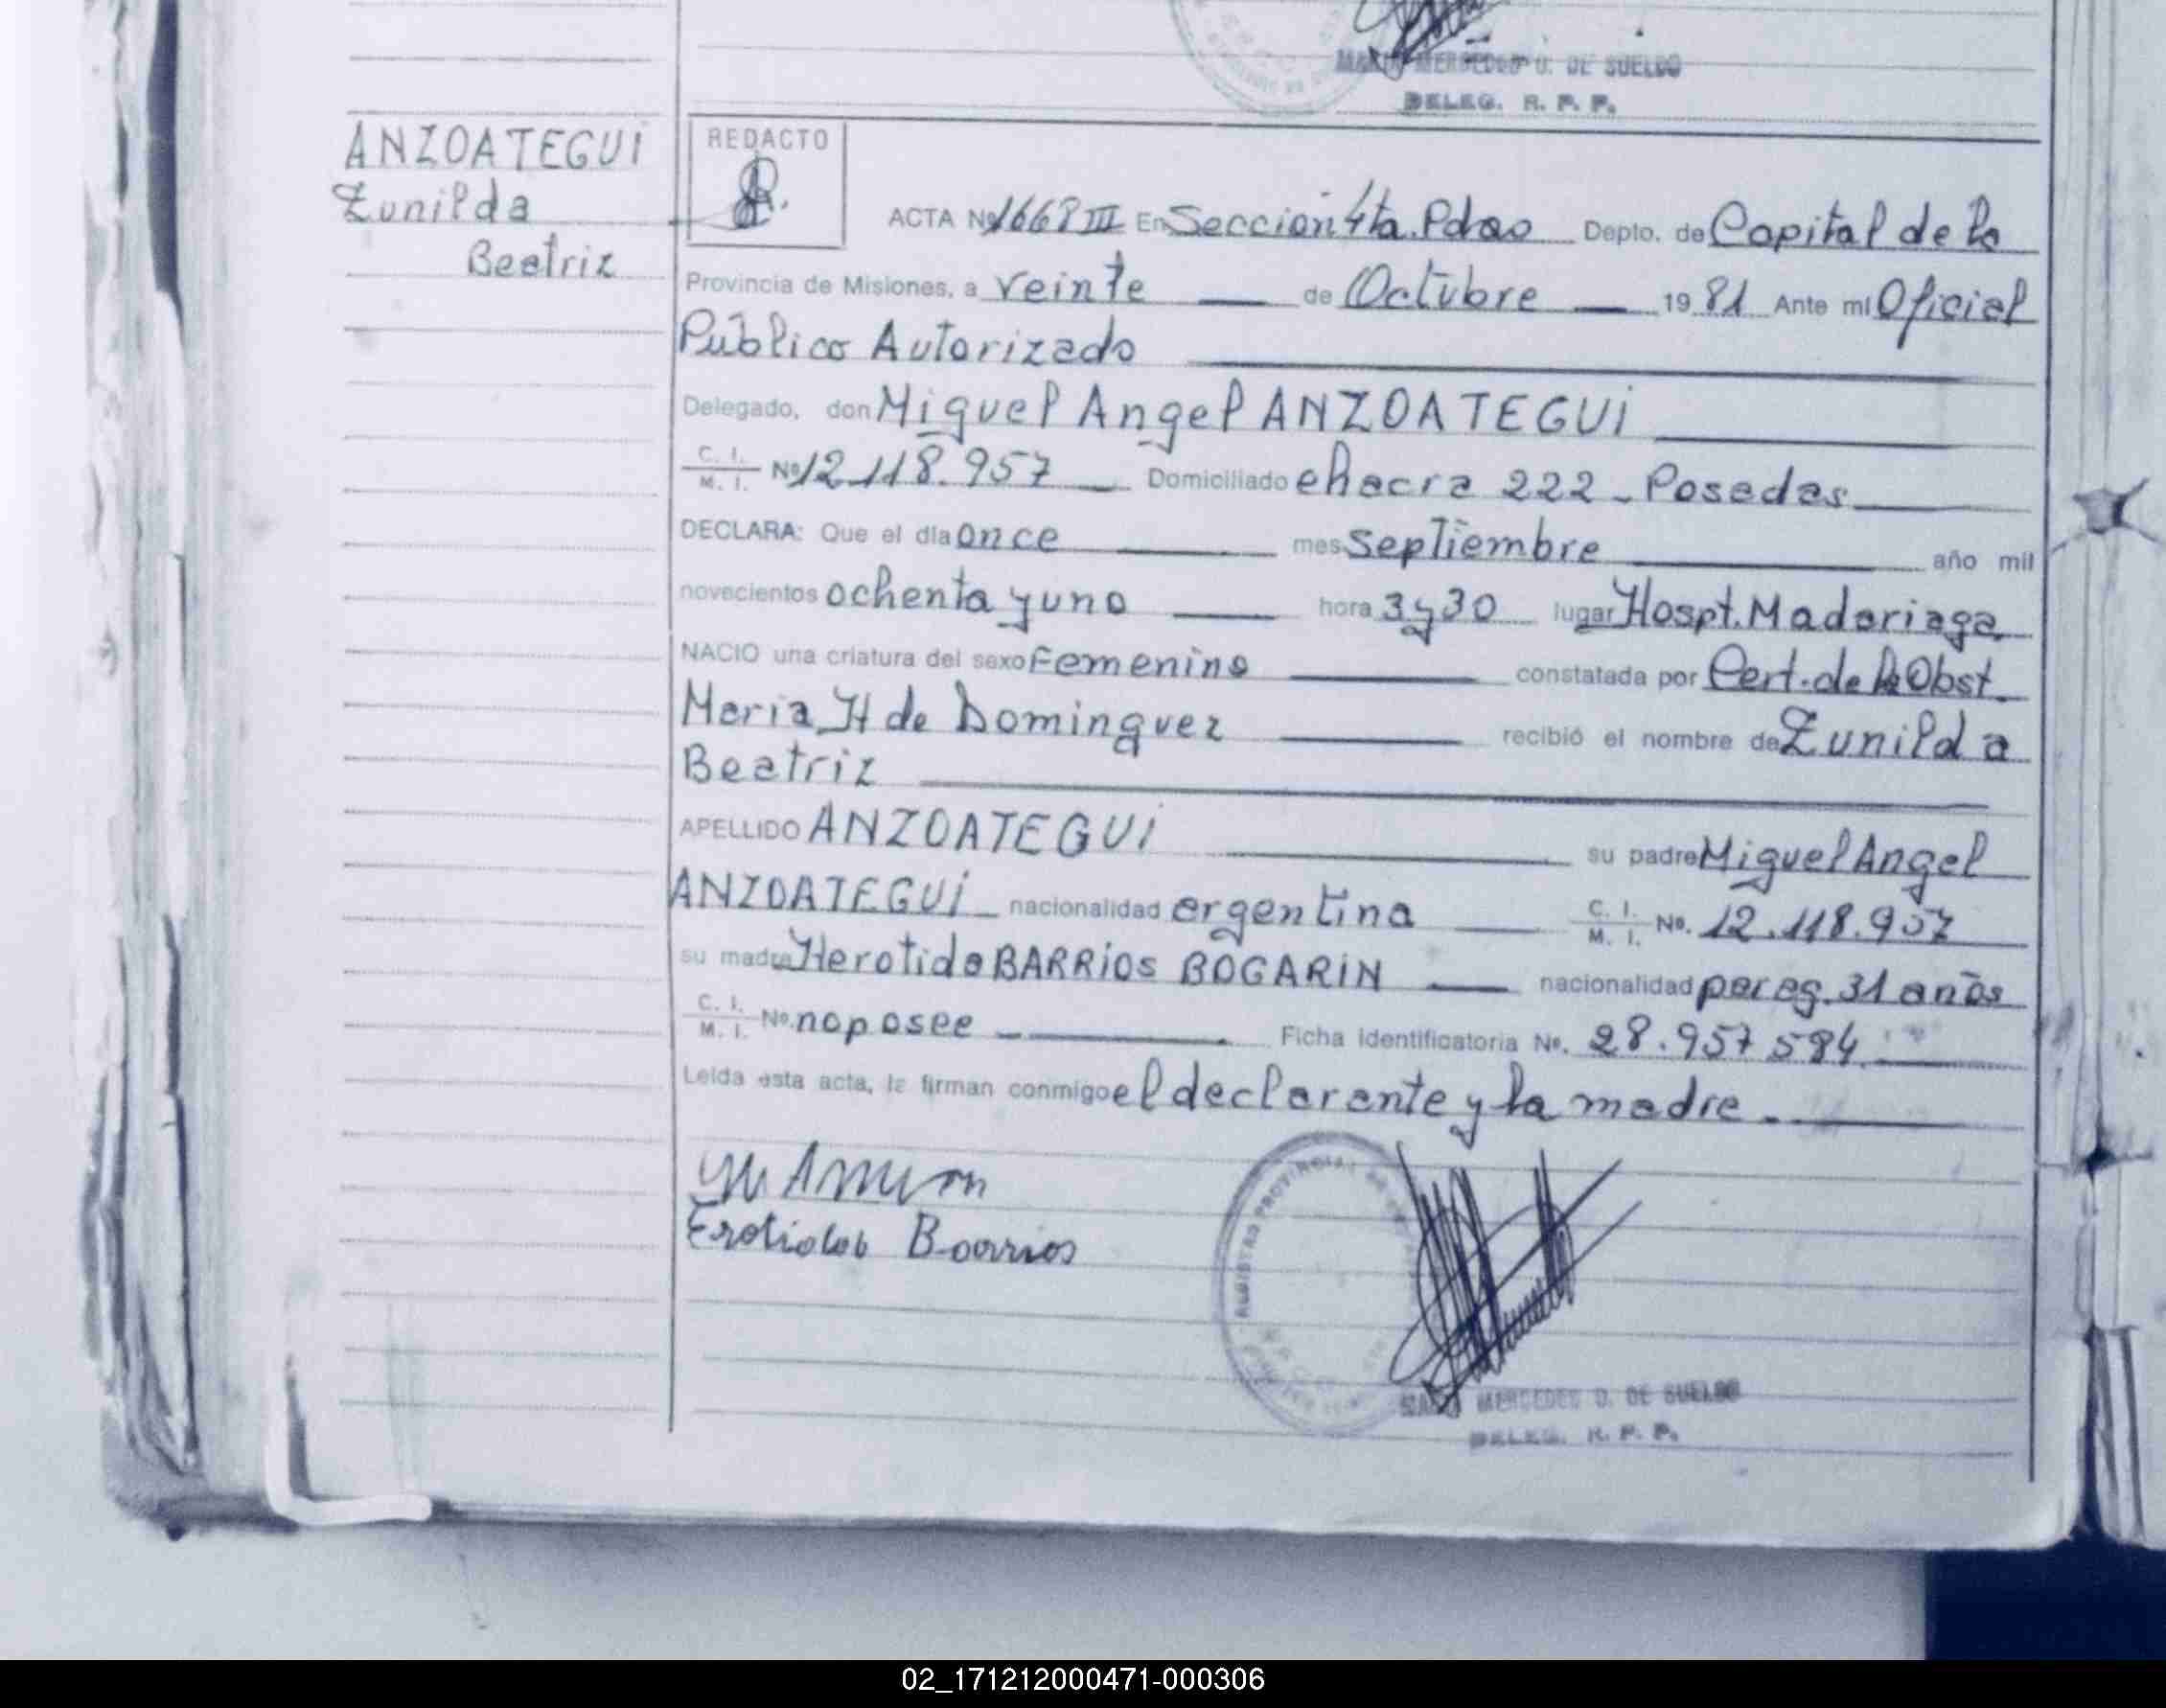 MARIA MERCEDES O. DE SUELDO
DELEG. R. P. P.
ANZOATEGUI
Zunilda
Beatriz
REDACTO
ACTA Nº 1668 III En Sección 4ta. Pdas Depto. de Capital de la
Provincia de Misiones, a veinte de Octubre 1981 Ante mi Oficial
Público Autorizado
Delegado, don Miguel Angel ANZOATEGUI
C. I. M. I. Nº 12.118.957 Domiciliado chacra 222 - Posadas
DECLARA: Que el día once mes septiembre año mil
novecientos ochenta y uno hora 3 y 30 lugar Hospt. Madariaga
NACIO una criatura del sexo Femenino constatada por Cert. de la Obst.
Maria H de Dominguez recibió el nombre de Zunilda
Beatriz
APELLIDO ANZOATEGUI su padre Miguel Angel
ANZOATEGUI nacionalidad argentina C. I. M. I. Nº. 12.118.957
su madre Herotida BARRIOS BOGARIN nacionalidad parag. 31 años
C. I. M. I. Nº. no posee Ficha identificatoria Nº. 28.957 584
Leída esta acta, la firman conmigo el declarante y la madre.
Erotida Barrios
REGISTRO PROVINCIAL DE
MARIA MERCEDES O. DE SUELDO
DELEG. R. P. P.
02_171212000471-000306